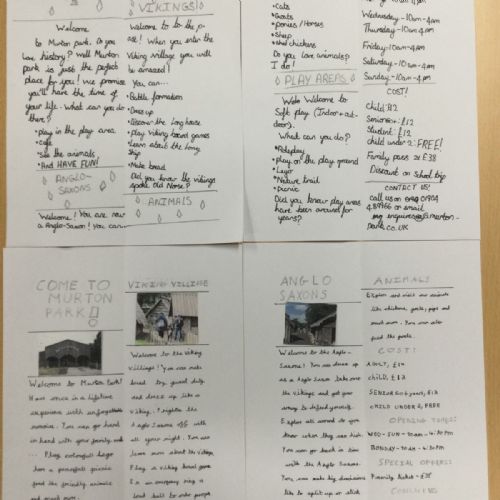 VIKINGS!
Welcome
to Murton park. Do you
love history? well Murton
Park is just the perfect
place for you! We promise
you'll have the time of
your life. What can you do
there?
•play in the play area
•cafe
•See the animals
•And HAVE FUN!
ANGLO-
SAXONS
Welcome! You are now
a Anglo-Saxon! You can...
Welcome to to the p-
ast! When you enter the
Viking village you will
be amazed!
You can...
•Battle formation
•Dress up
•Discover the Longhouse
•Play Viking board games
•Learn about the Long
Ship
•Make bread
Did you know the vikings
spoke old Norse?
ANIMALS
•Cats
•Goats
•ponies / Horses
•Sheep
•and chickens
Do you love animals?
I do!
PLAY AREAS
Welcome to
Soft play (Indoor + out-
door).
What can you do?
•Roleplay
•Play on the play ground
•Lego
•Nature trail
•Picnic
Did you know play areas
have been around for
years?
Wednesday-10am-4pm
Thursday-10am-4pm
Friday-10am-4pm
Saturday-10am-4pm
Sunday-10am-4pm
COST!
Child:£12
Senior:£12
Student:£12
child under 2:FREE!
Family pass £38
Discount on School trip
CONTACT US!
call us on 01904
489966 or email
enquires@murton-
park.co.uk
COME TO
MURTON
PARK!
Welcome to Murton Park!
Have once in a lifetime
experience with unforgettable
memories. You can go hand
in hand with your family
Play
have a peaceful picnic
feed the friendly animals
and much more.
VIKING VILLAGE
Welcome to the viking
Village! You can make
bread, guard duty,
and dress up like a
Viking. Fight the
Anglo Saxons off with
all your might. You can
learn more about the village,
Play a viking board game
ANGLO
SAXONS
Welcome to the Anglo-
Saxons! You can dress up
as a Anglo Saxon take over
the village and get your
army to defend yourself.
Explore all around do you
know when they use
You can go back in time
with the Anglo Saxons.
You can make big decisions
like to split up or stick
ANIMALS
Explore and visit our animals
like chickens, goats, pigs and
much more. You can also
feed the goats.
COST!
ADULT, £12
CHILD, £12
SENIOR
CHILD UNDER 2, FREE
OPENING TIMES!
WED - SUN - 10am - 4:30PM
MONDAY - 10am - 4:30PM
SPECIAL OFFERS!
Family ticket - £38